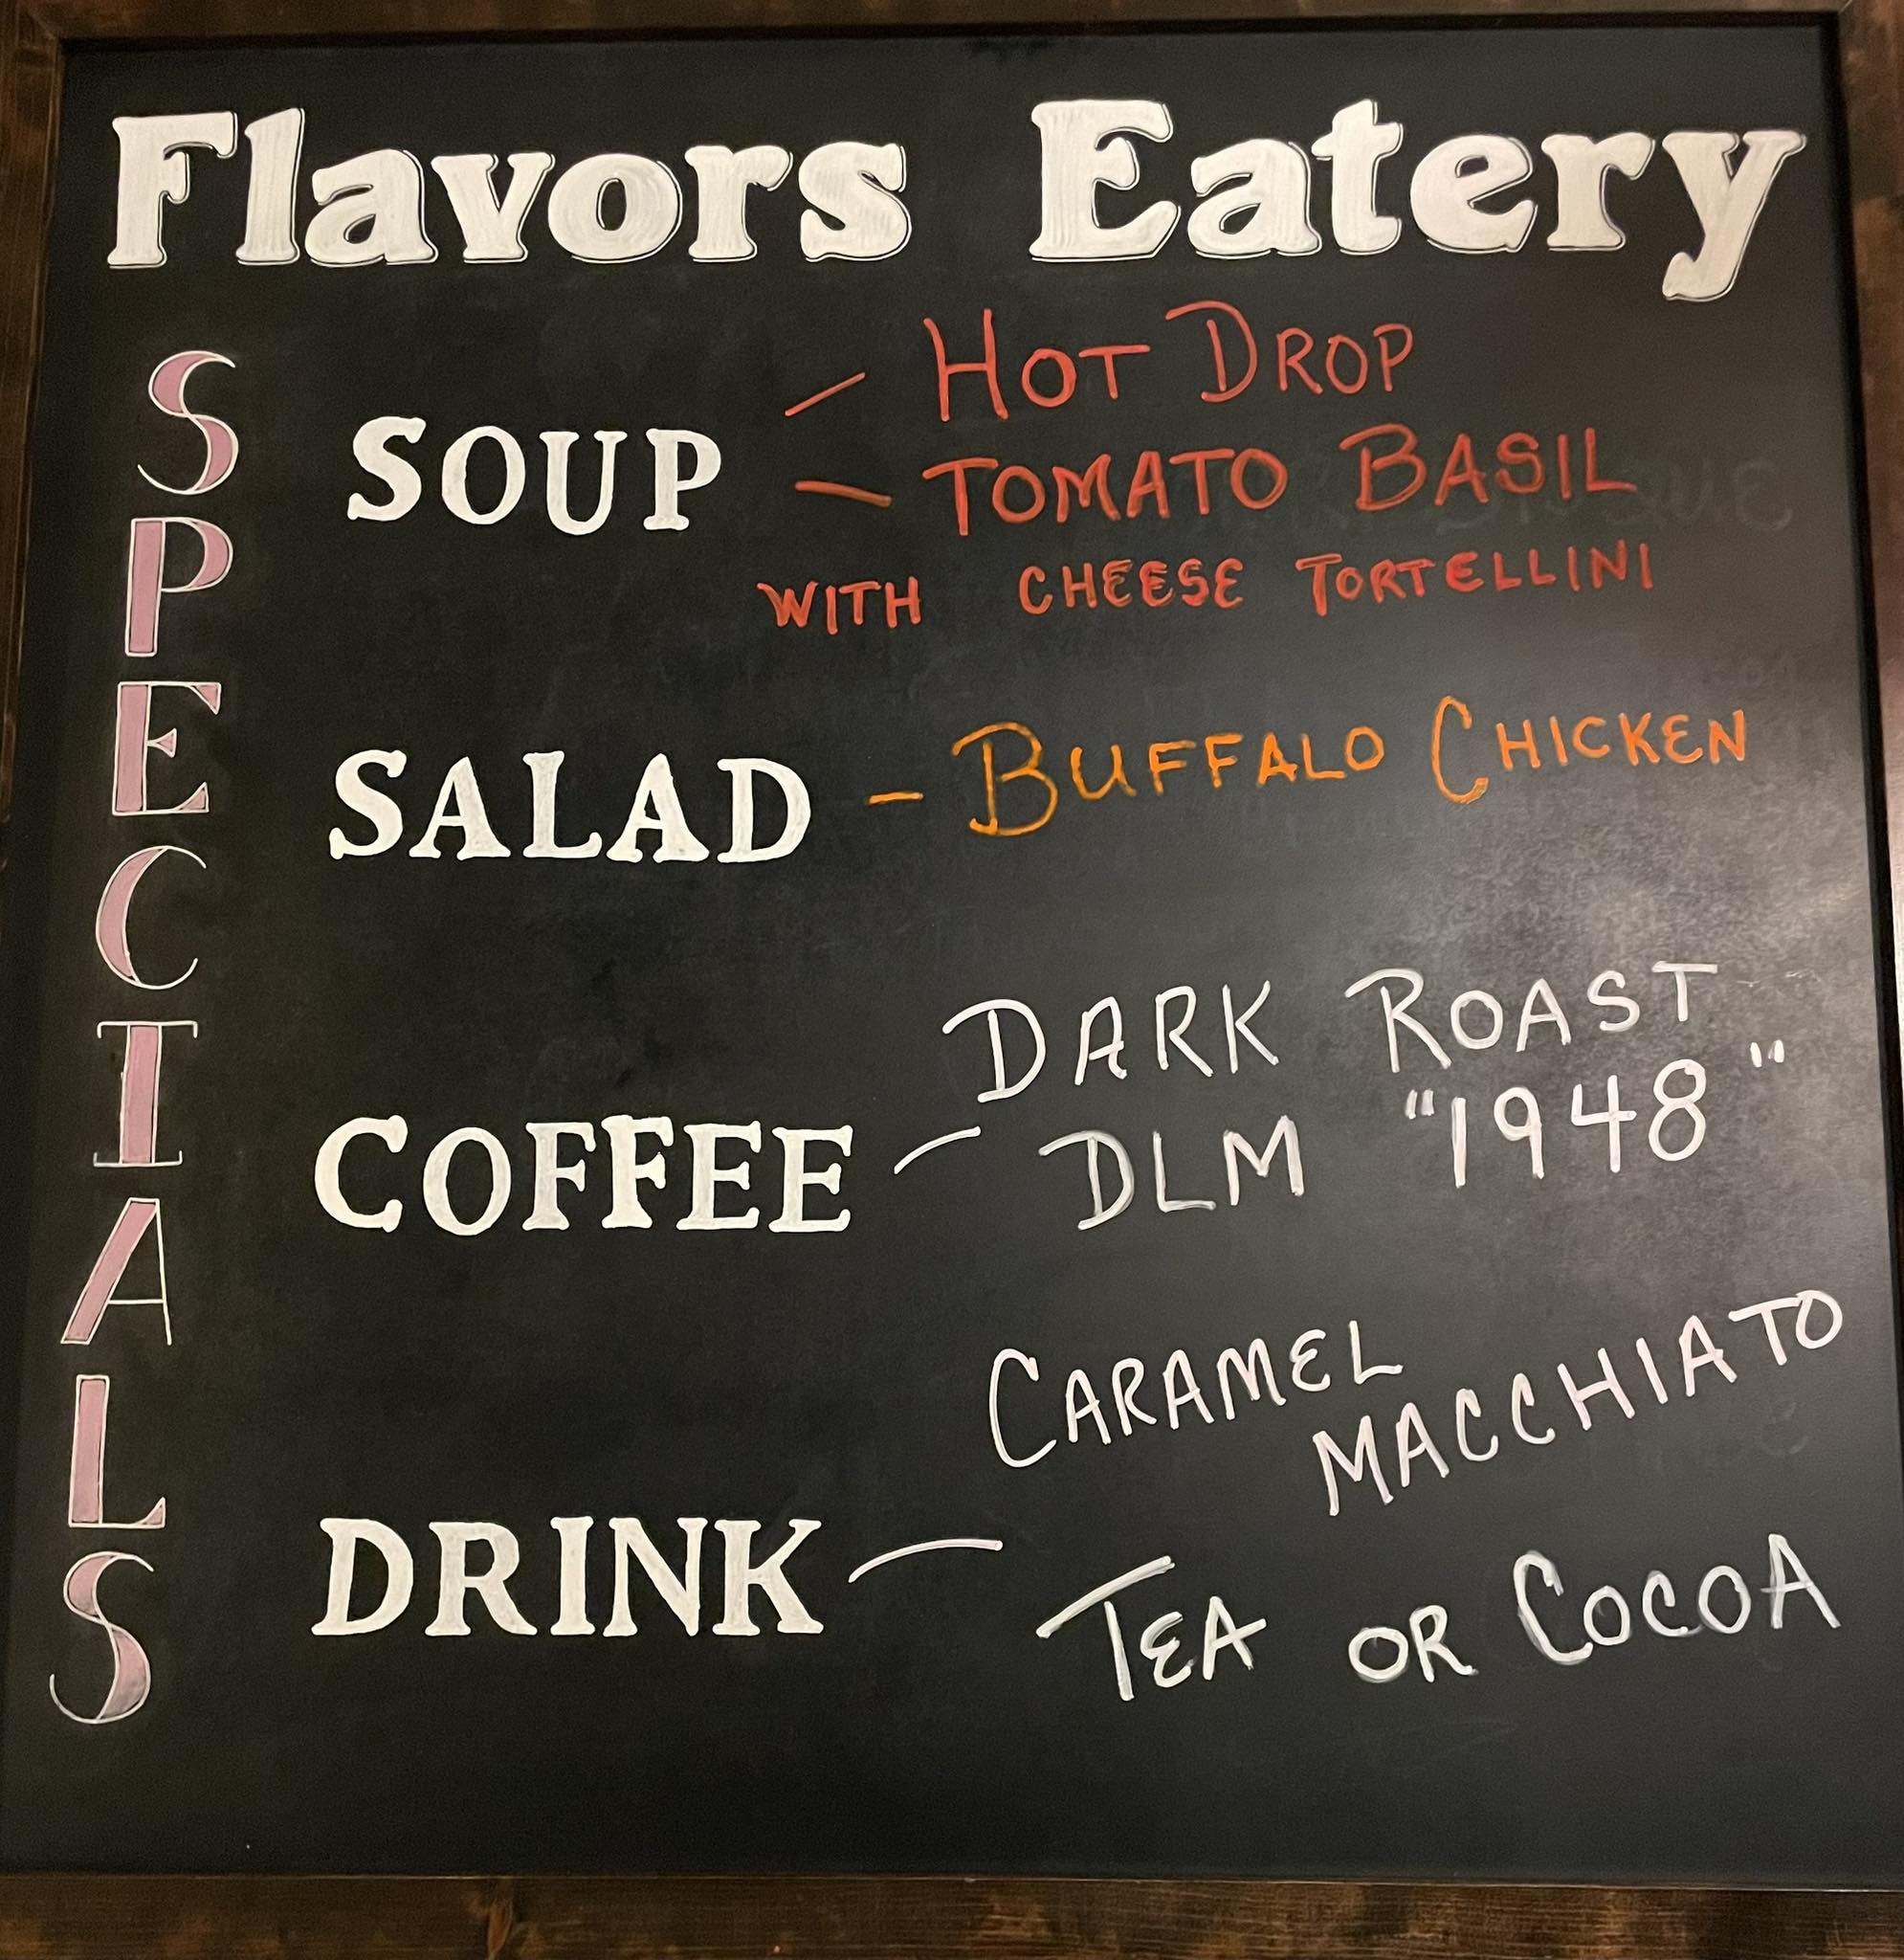 Flavors Eatery
SPECIALS
SOUP
- HOT DROP
- TOMATO BASIL
WITH CHEESE TORTELLINI
SALAD - BUFFALO CHICKEN
DARK ROAST
COFFEE - DLM "1948"
CARAMEL
MACCHIATO
DRINK -
TEA OR COCOA